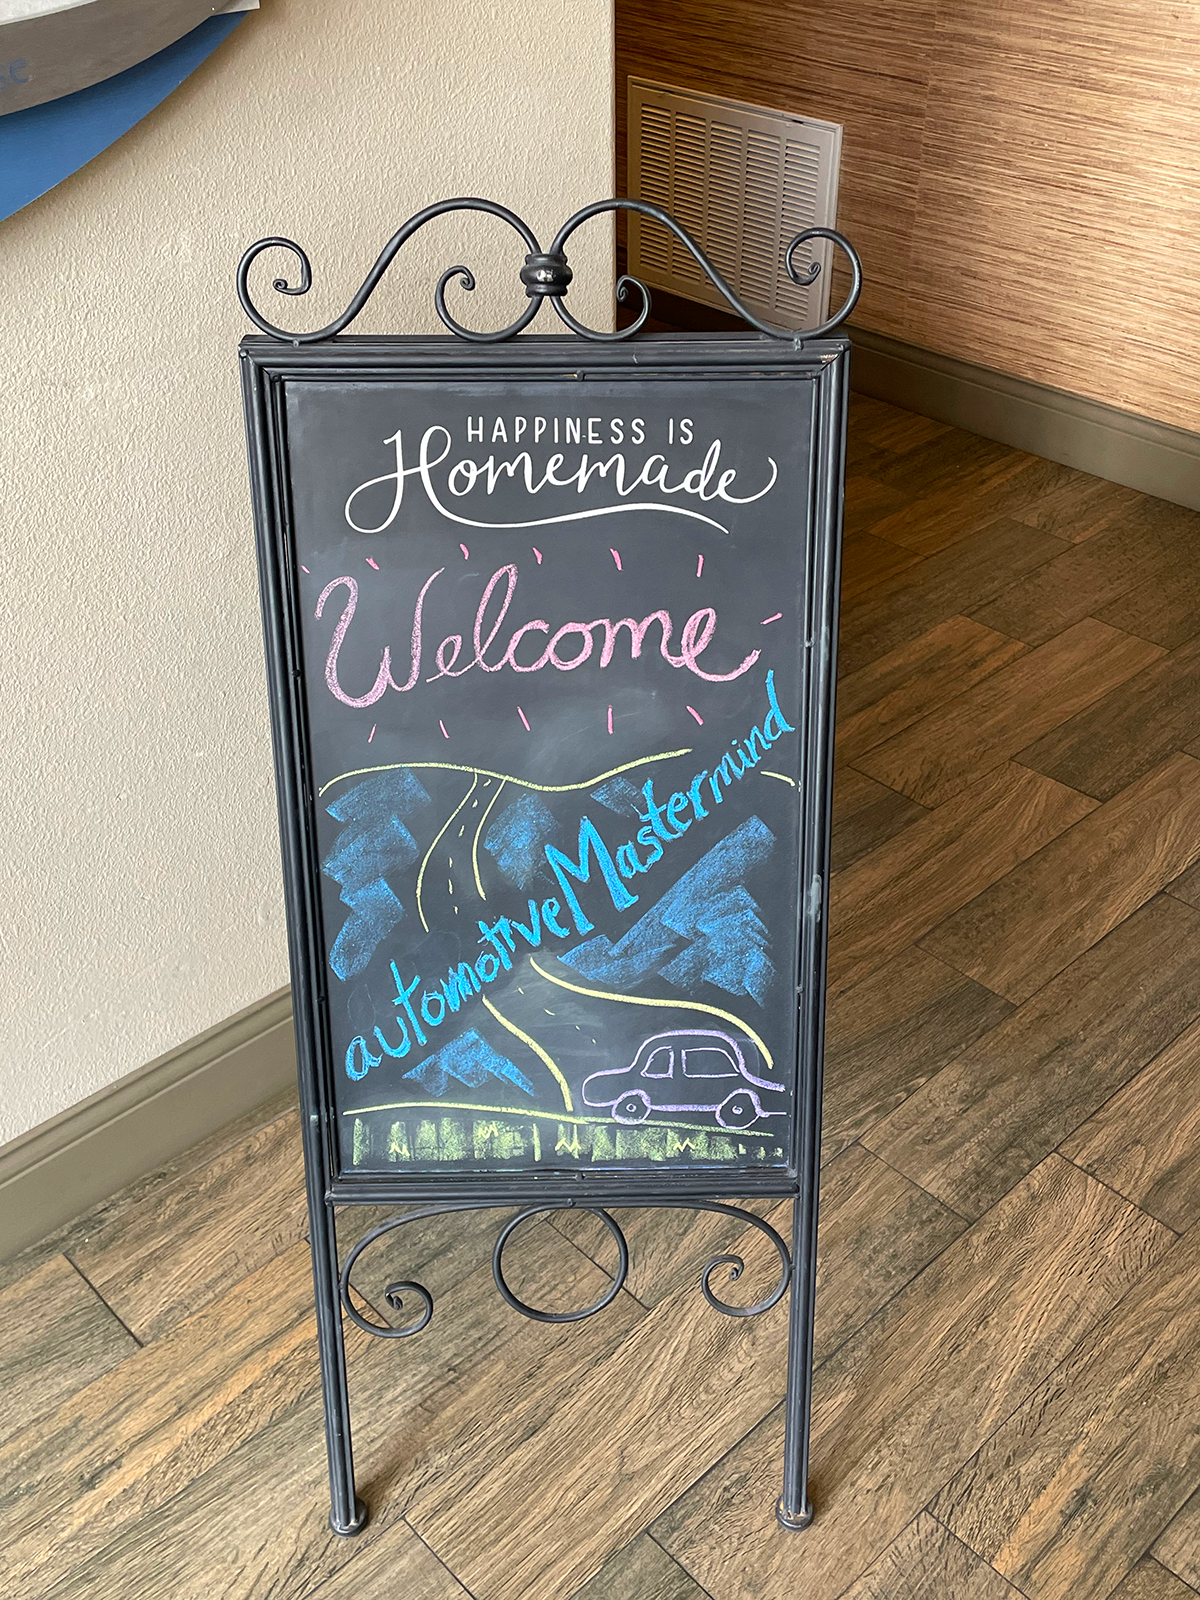 HAPPINESS IS
Homemade
Welcome
automotive Mastermind